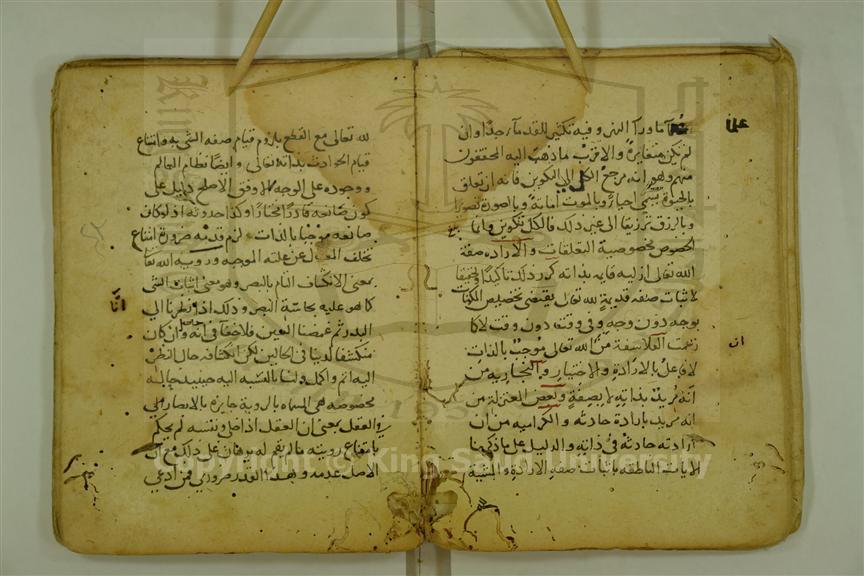 علماء ما وراء النهر وفيه تكثير القدماء جدا وان
لم تكن متغايرة والاقرب ما ذهب اليه المحققون
منهم وهو انه مرجع الكل الى التكوين فانه ان تعلق
بالحيوة يسمى احياء وبالموت اماتة وبالصورة تصويرا
وبالرزق ترزيقا الى غير ذلك فالكل تكوين وانما
الخصوص بخصوصية التعلقات والارادة صفة
الله تعالى ازلية قايمة بذاته كرر ذلك تاكيدا وتحقيقا
لاثبات صفة قديمة لله تعالى يقتضى تخصيص المكونات
بوجه دون وجه وفي وقت دون وقت لا كما
زعمت الفلاسفة من ان الله تعالى موجب بالذات
لا فاعل بالارادة والاختيار والنجارية من
انه مريد بذاته لا بصفة وبعض المعتزلة من
انه مريد بارادة حادثة والكرامية من ان
ارادته حادثة في ذاته والدليل على ما ذكرنا
الايات الناطقة باثبات صفة الارادة والمشية
لله تعالى مع القطع بلزوم قيام صفة الشي به وامتناع
قيام الحوادث بذاته تعالى وايضا نظام العالم
ووجوده على الوجه الاوفق الاصلح دليل على
كون صانعه قادرا مختارا وكذا حدوثه اذ لو كان
صانعه موجبا بالذات لزم قدمه ضرورة امتناع
تخلف المعلول عن علته الموجبة وروية الله تعالى
بمعنى الانكشاف التام بالبصر وهو معنى اثبات الشي
كما هو عليه بحاسة البصر وذلك انا اذا نظرنا الى
البدر ثم غمضنا العين فلا خفا في انه وان كان
منكشفا لدينا في الحالين لكن انكشافه حال النظر
اليه اتم واكمل ولنا بالنسبة اليه حينيذ حالة
مخصوصة هي المسماة بالروية جايزة بالابصار في
العقل بمعنى ان العقل اذا خلى ونفسه لم يحكم
بامتناع رويته ما لم يقم له برهان على ذلك مع ان
الاصل عدمه وهذا القدر ضروري فمن ادعى
Copyright © King Saud University